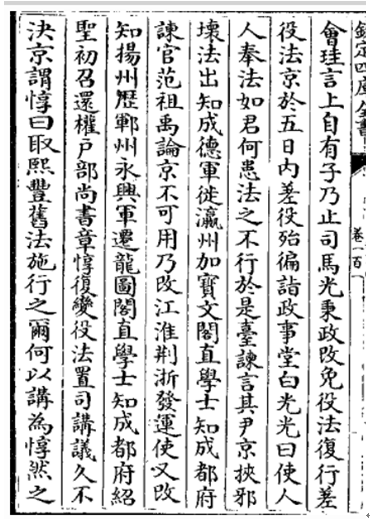 欽定四庫全書
卷一百
會珪言上自有子乃止司馬光秉政改免役法復行差
役法京於五日内差役殆徧詣政事堂白光光曰使人
人奉法如君何患法之不行於是臺諫言其尹京挾邪
壞法出知成德軍徙瀛州加寳文閣直學士知成都府
諫官范祖禹論京不可用乃改江淮荆浙發運使又改
知揚州歴鄆州永興軍遷龍圖閣直學士知成都府紹
聖初召還權户部尚書章惇復變役法置司講議久不
決京謂惇曰取熙豐舊法施行之爾何以講為惇然之